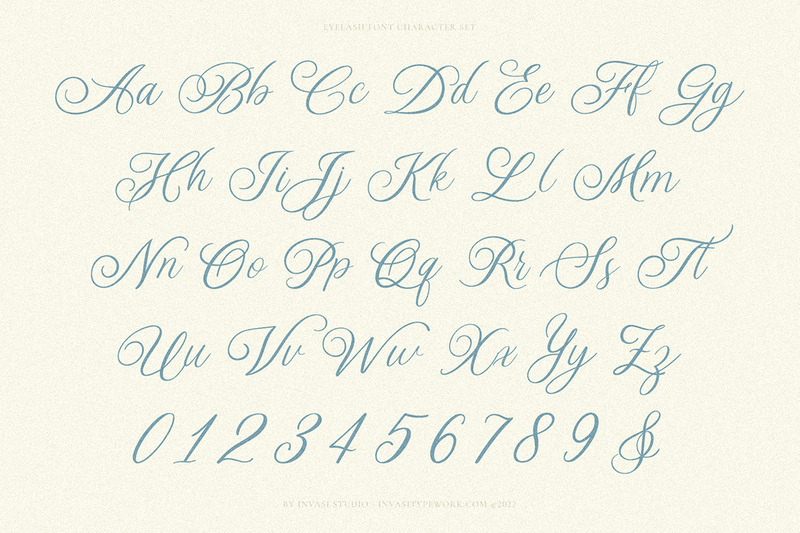 EYELASH FONT CHARACTER SET
Aa Bb Cc Dd Ee Ff Gg
Hh Ii Jj Kk Ll Mm
Nn Oo Pp Qq Rr Ss Tt
Uu Vv Ww Xx Yy Zz
0 1 2 3 4 5 6 7 8 9 &
BY INVASI STUDIO - INVASITYPEWORK.COM ©2022